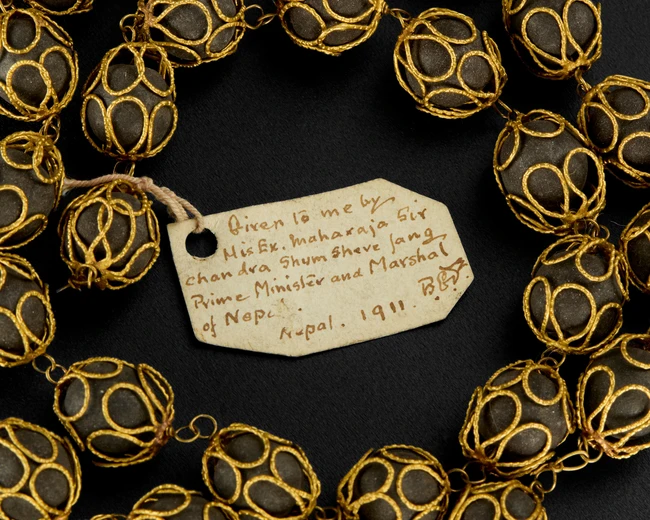 Given to me by
His Ex. Maharaja Sir
chandra Shum Shere Jang
Prime Minister and Marshal
of Nepal.
Nepal. 1911.